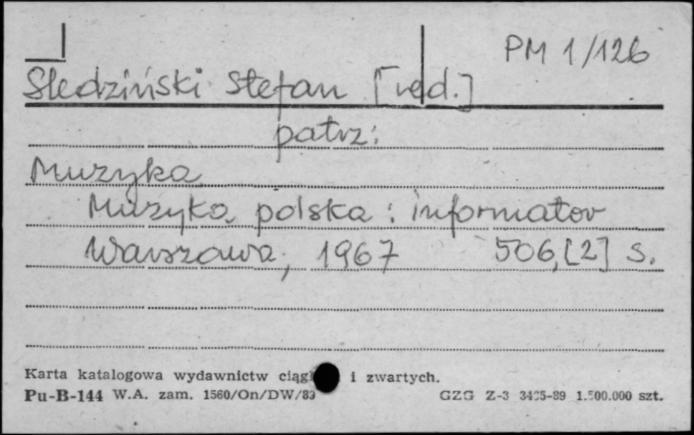 PM 1/126
Śledziński Stefan [red.]
patrz:
Muzyka
Muzyka polska : informator
Warszawa, 1967 506,[2] s.
Karta katalogowa wydawnictw i zwartych.
Pu-B-144 W.A. zam. 1560/On/DW/83 GZG Z-3 1.500.000 szt.